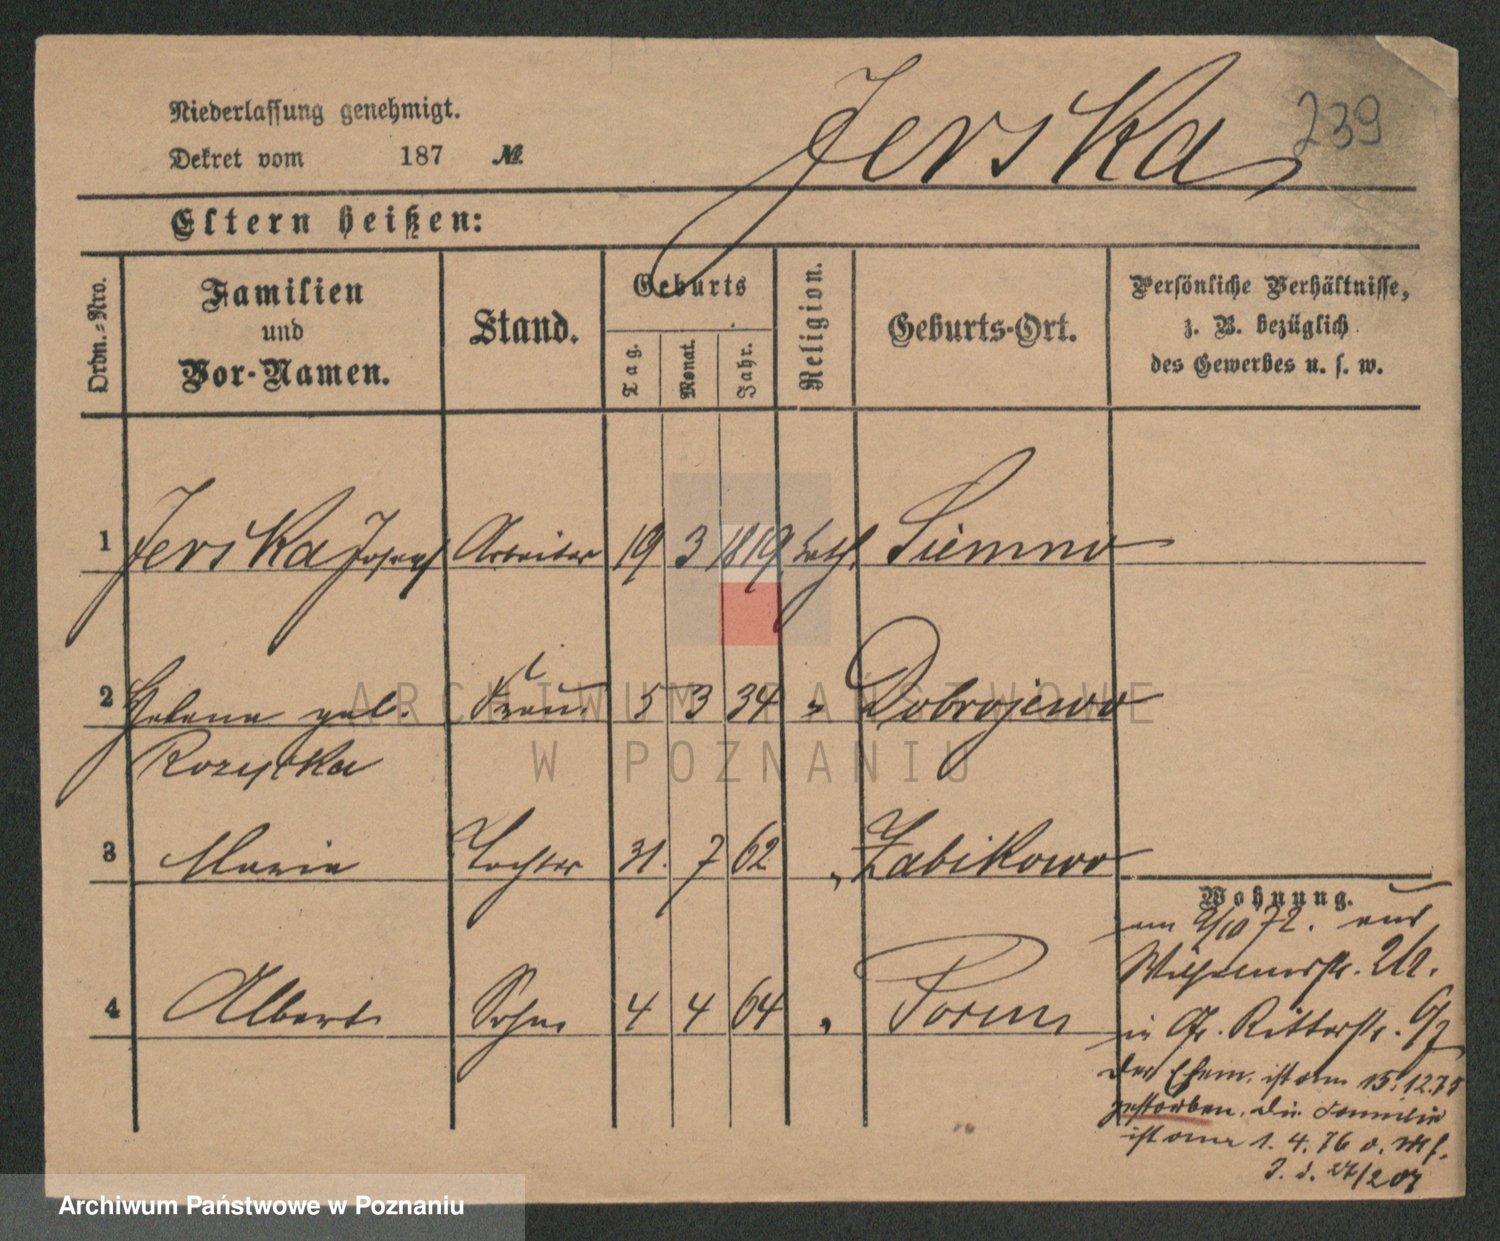 239
Jerska
Niederlassung genehmigt.
Dekret vom 187 №
Eltern heißen:
Ordn.-Nro.
Familien und Vor-Namen.
Stand.
Geburts
Tag. Monat. Jahr.
Religion.
Geburts-Ort.
Persönliche Verhältnisse,
z. B. bezüglich
des Gewerbes u. s. w.
1 Jerska Joseph Arbeiter 19 3 1819 kath.
2 Helena geb. Frau 5 3 34 " Dobrojewo
3 Marie Tochter 31. 7 62 " Zabikowo
4 Albert Sohn 4 4 64 " Posen
Wohnung.
am 9/10 72. aus
Wilhelmsstr.
in Gr. Ritterstr.
Der Ehem. ist am 15.12.75
gestorben. Die Familie
ist am 1. 4. 76
ARCHIWUM PAŃSTWOWE
W POZNANIU
Archiwum Państwowe w Poznaniu